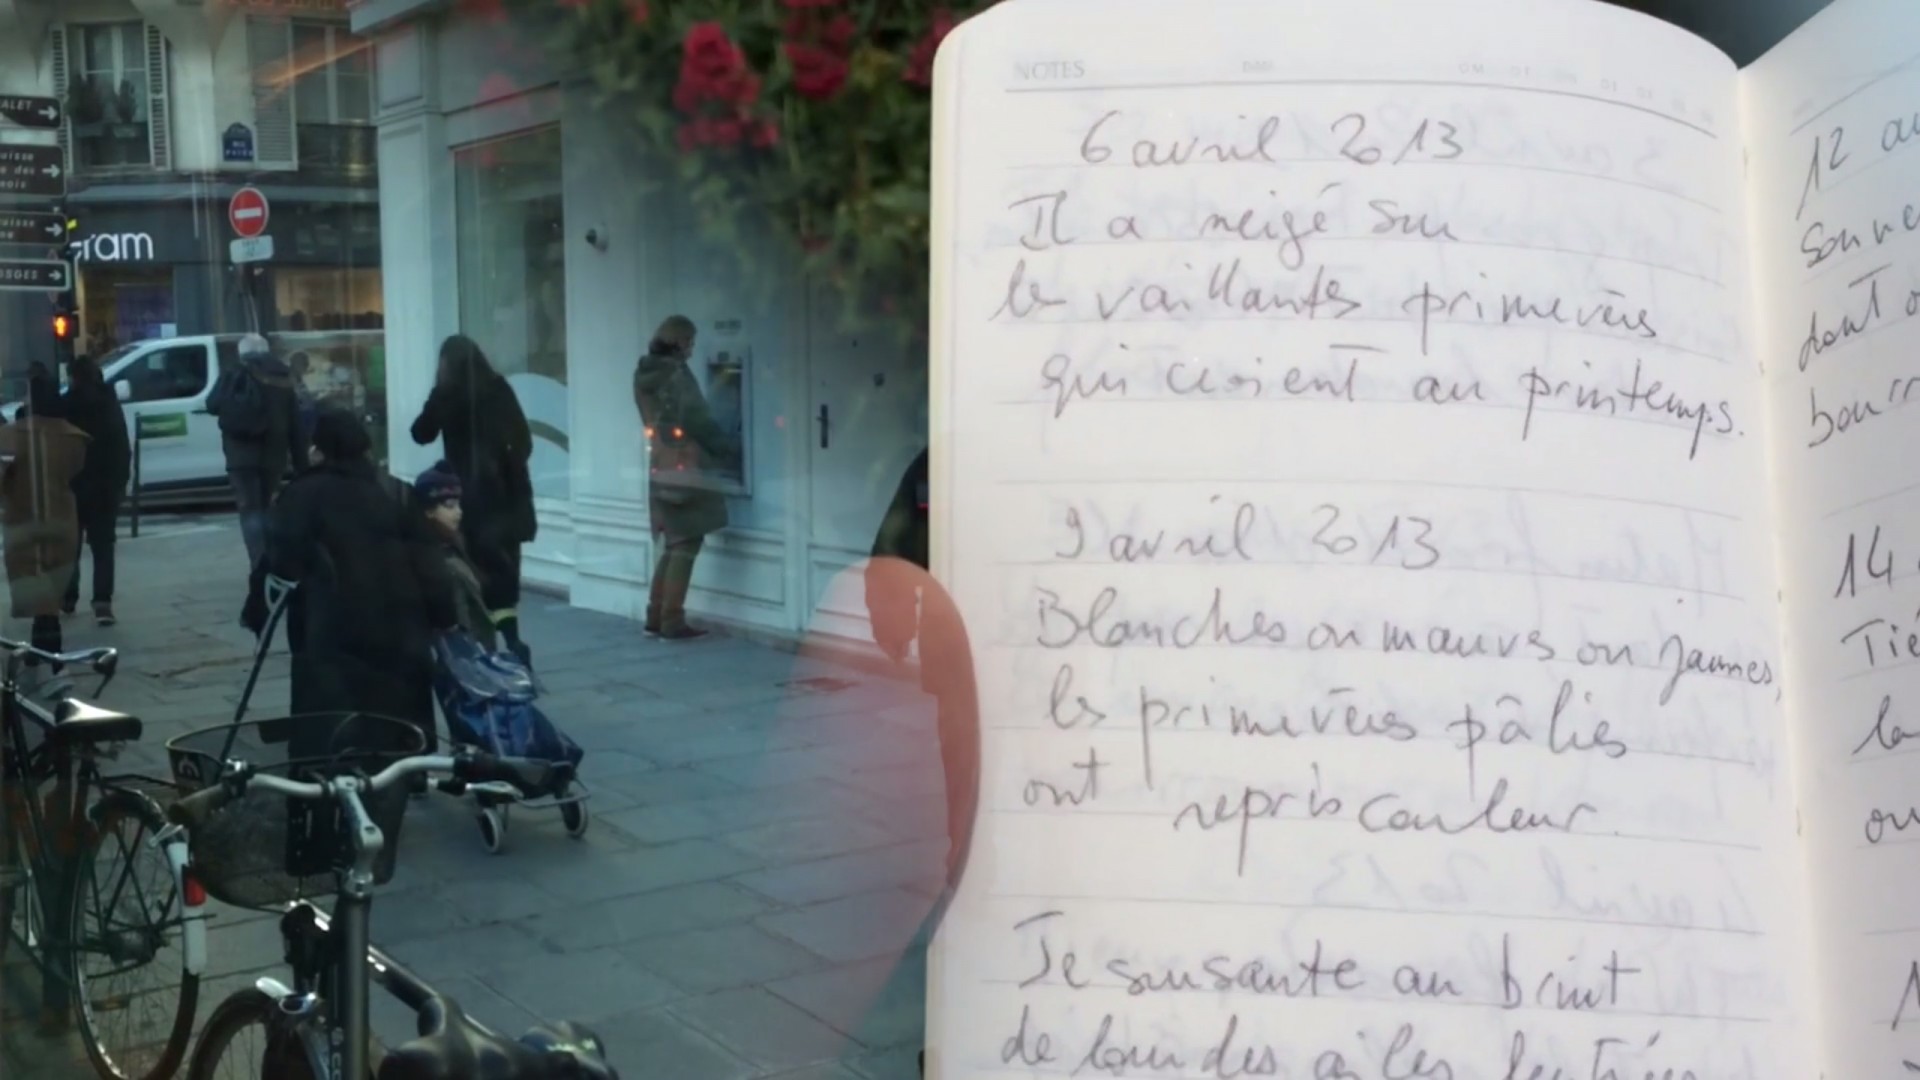 ALET
uisse
e des
ois
uisse
OSGES
cram
NOTES
6 avril 2013
Il a neigé sur
les vaillantes primevères
qui croient au printemps.
9 avril 2013
Blanches ou mauves ou jaunes,
les primevères pâlies
ont repris couleur.
Je sursaute au bruit
de lourdes ailes
12 av
Sou
dont
bourr
14
Tié
la
ou